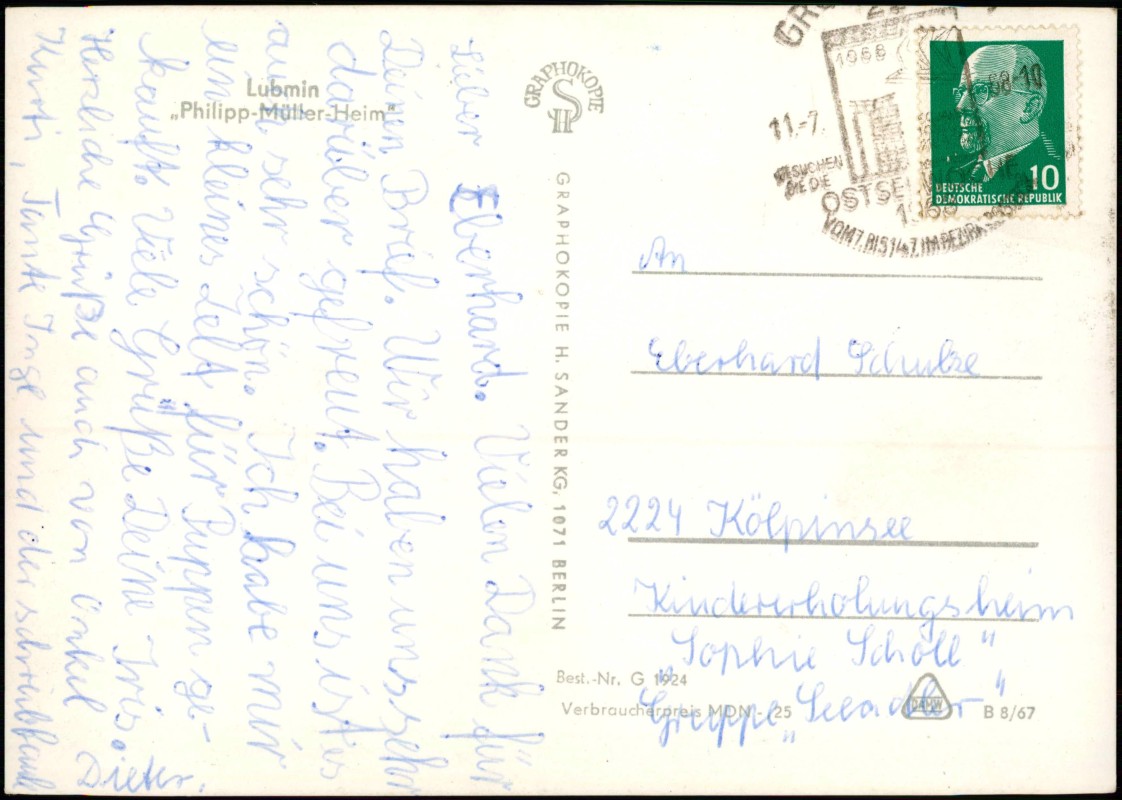 Lubmin
„Philipp-Müller-Heim"
Lieber Eberhard. Vielen Dank für
Deinen Brief. Wir haben uns sehr
darüber gefreut. Bei uns ist es
auch sehr schön. Ich habe mir
ein kleines Zelt für Puppen ge-
kauft. Viele Grüße Deine Iris.
Herzliche Grüße auch von Onkel
Kurti, Tante Inge und der schreibfaule
Dieter.
GRAPHOKOPIE
GRAPHOKOPIE H. SANDER KG, 1071 BERLIN
1968
11.-7. 68-10
BESUCHEN
SIE DIE
OSTSEE
1968
VOM 7. BIS 14.7. IM BEZIRK
10
DEUTSCHE
DEMOKRATISCHE REPUBLIK
An
Eberhard Schulze
2224 Kölpinsee
Kindererholungsheim
„Sophie Scholl"
Gruppe „Seeadler"
Best.-Nr. G 1924
Verbraucherpreis MDN -.25
DEWAG
B 8/67